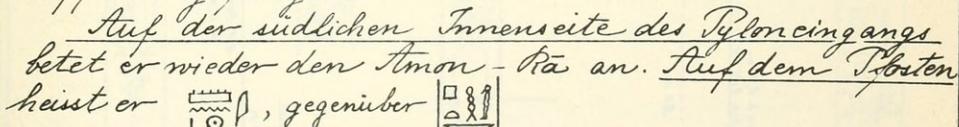 Auf der südlichen Innenseite des Pyloneingangs
betet er wieder den Amon - Rā an. Auf dem Pfosten
heisst er 𓇋𓏠𓈖𓇳, gegenüber 𓊪𓏏𓎛